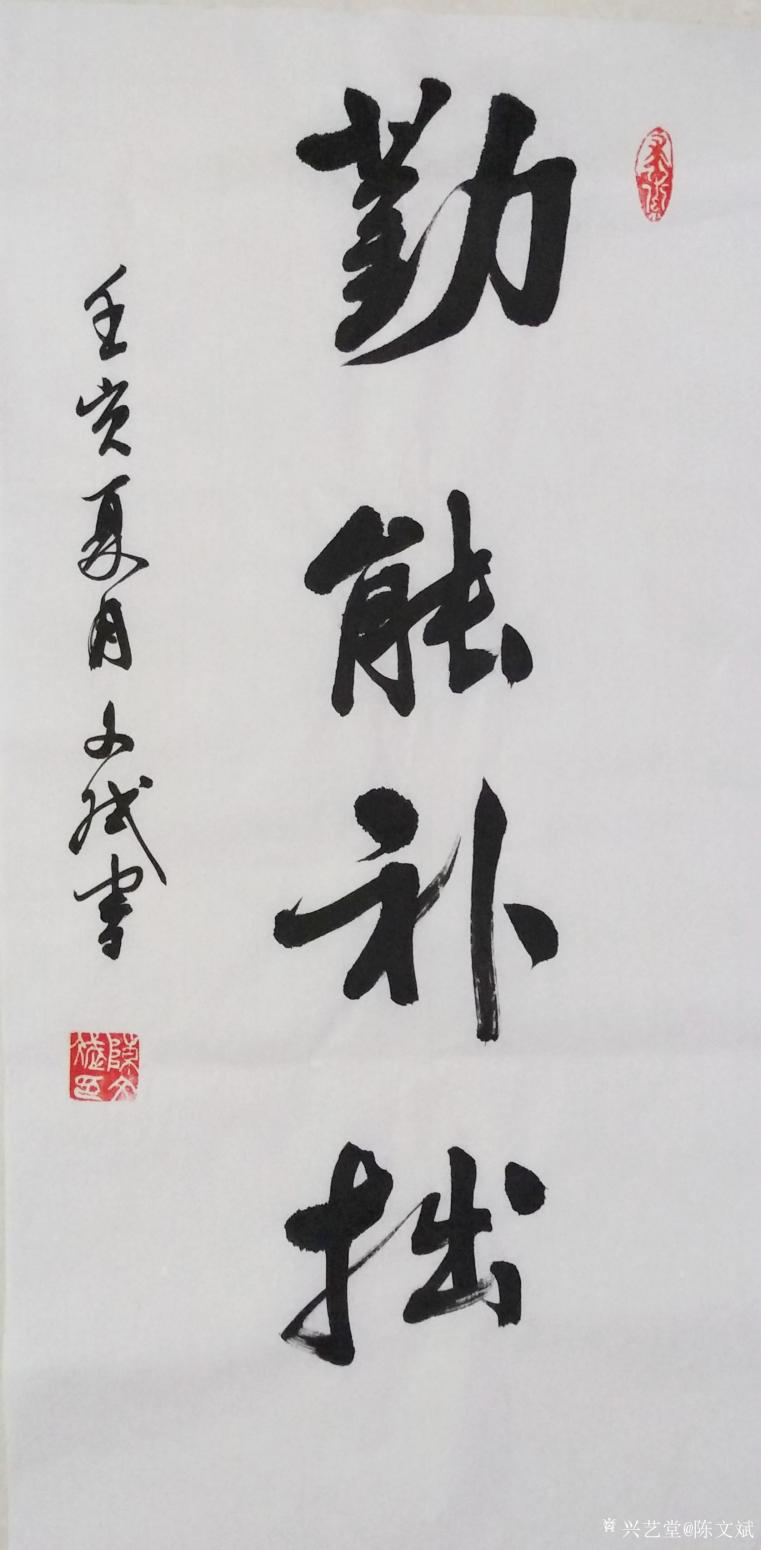 勤能补拙
壬寅夏月文斌書
陳文斌印
兴艺堂@陈文斌